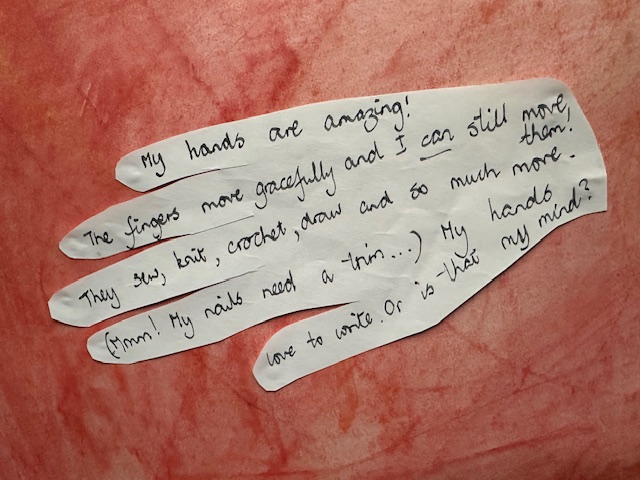 My hands are amazing!
The fingers move gracefully and I can still move
them!
They sew, knit, crochet, draw and so much more.
(Mmm! My nails need a trim...) My hands
love to write. Or is that my mind?